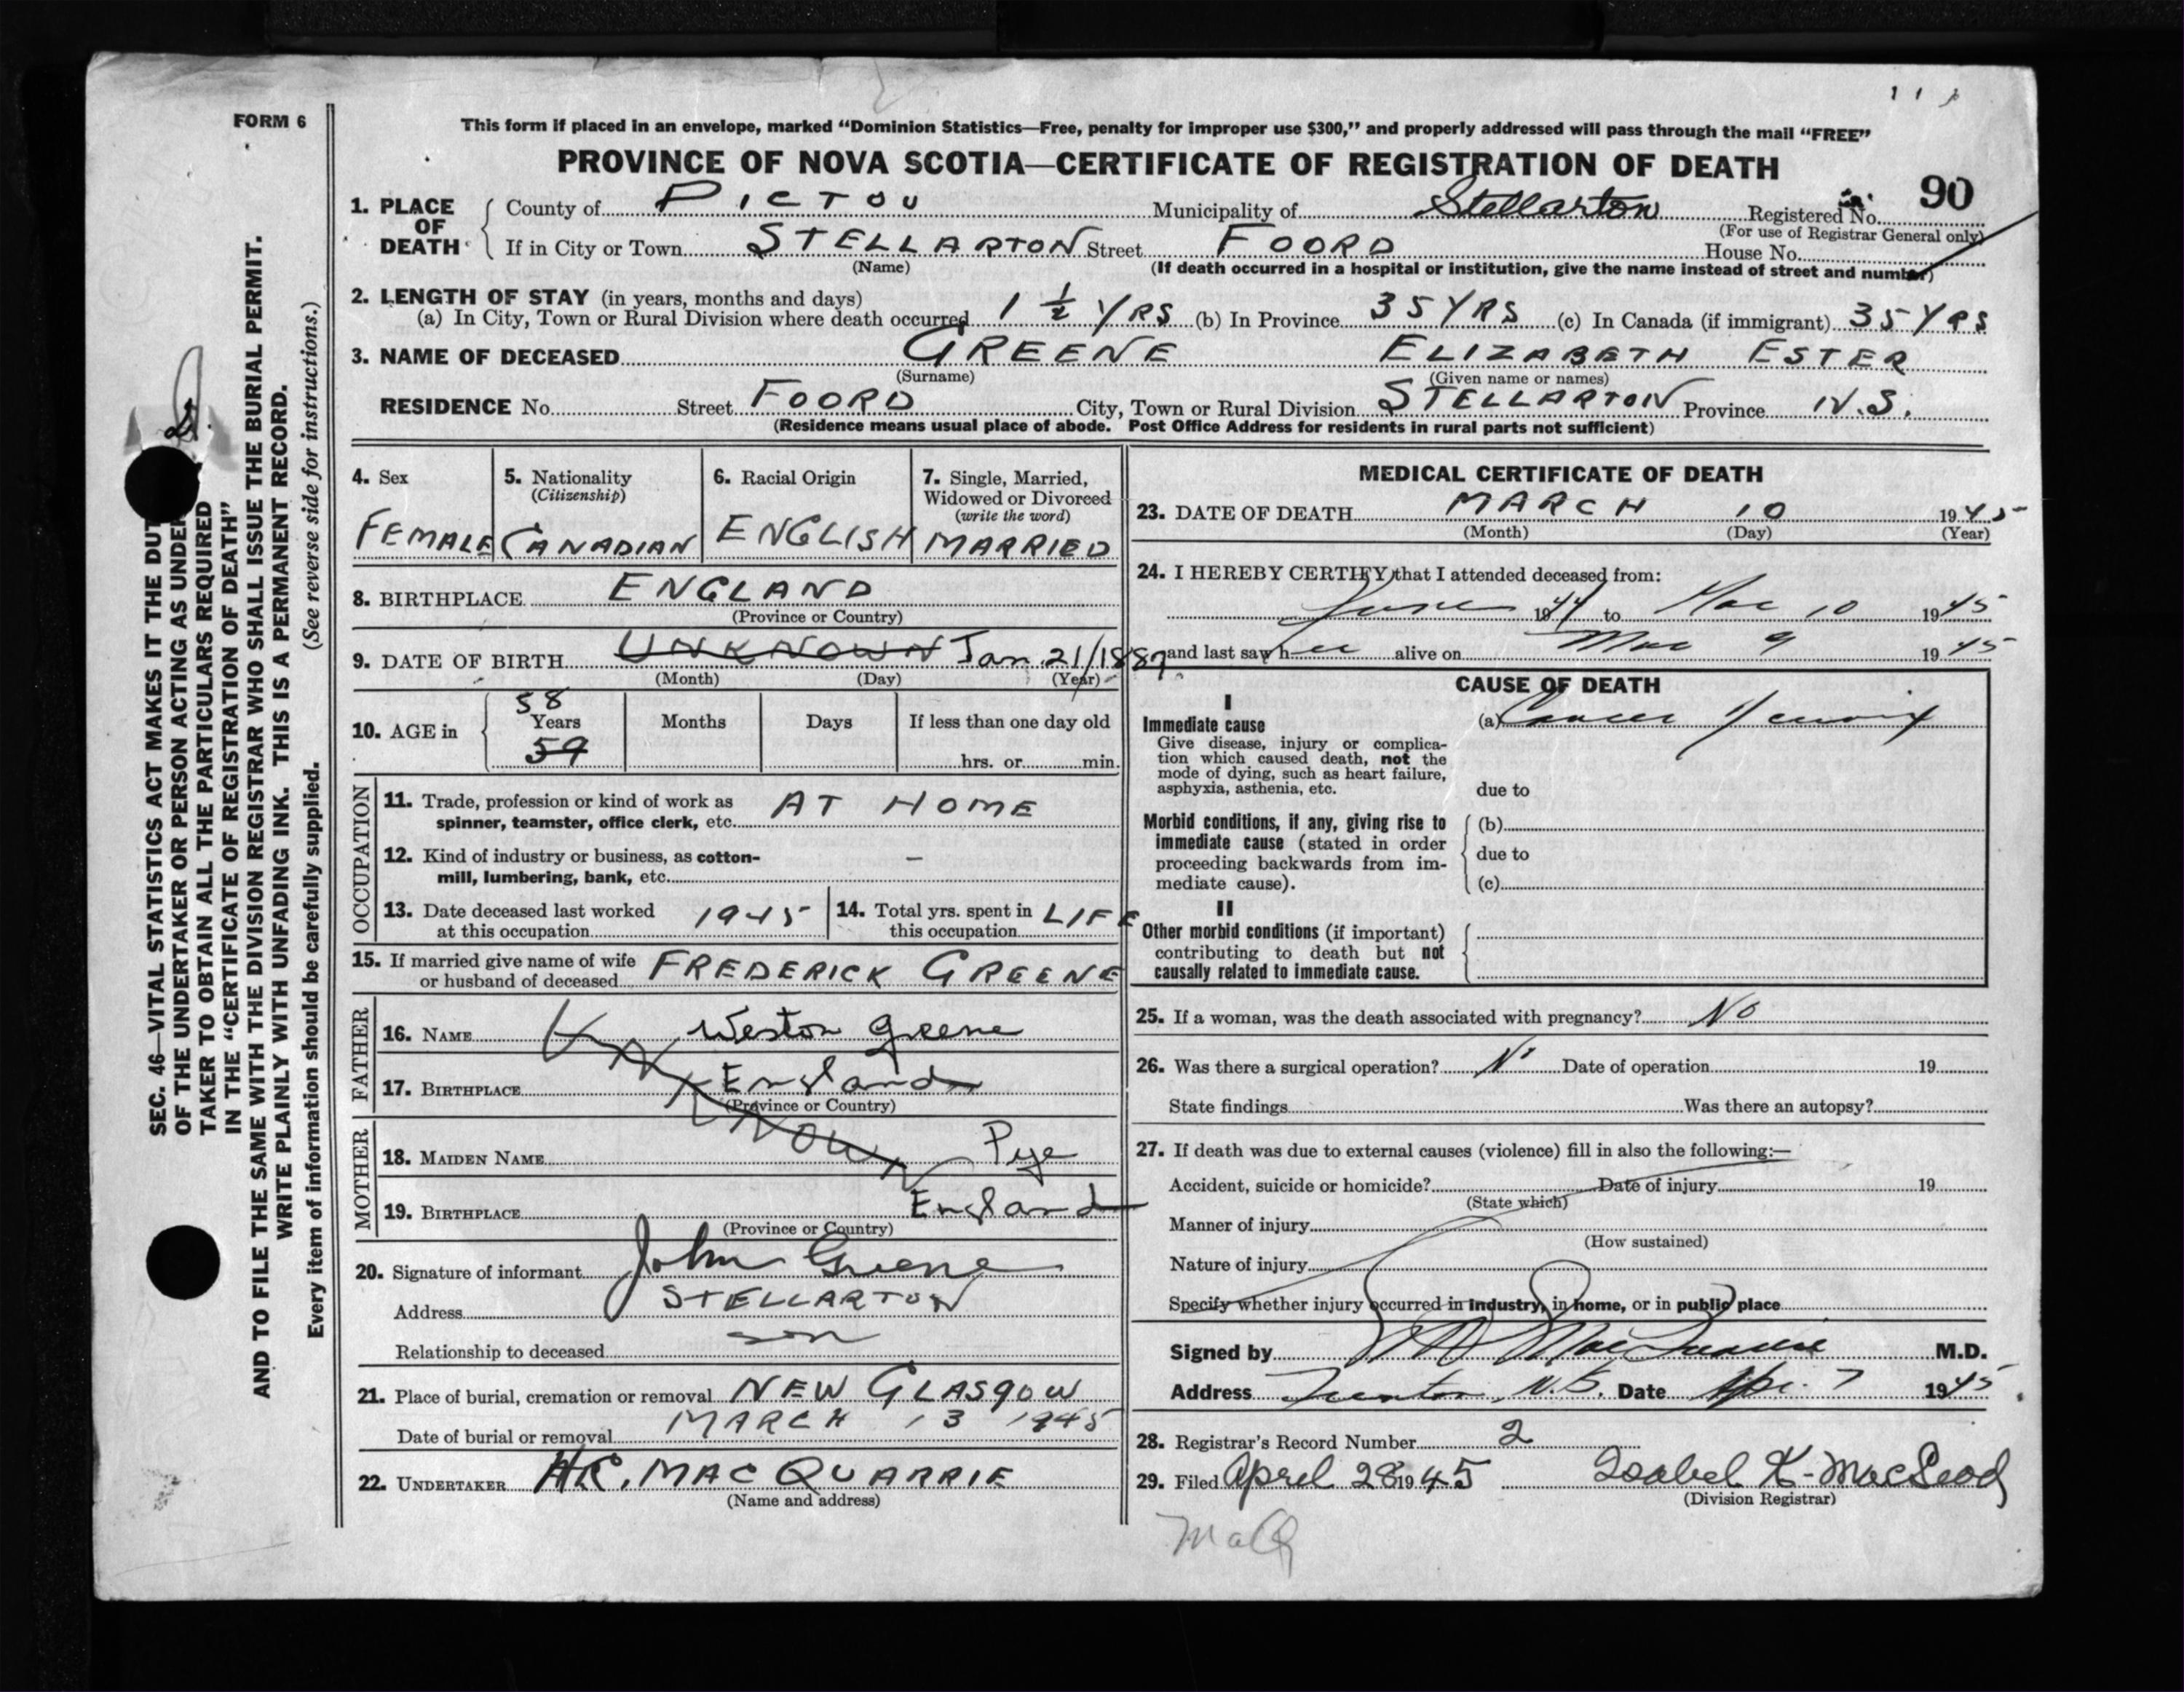 FORM 6
This form if placed in an envelope, marked "Dominion Statistics—Free, penalty for improper use $300," and properly addressed will pass through the mail "FREE"
PROVINCE OF NOVA SCOTIA—CERTIFICATE OF REGISTRATION OF DEATH
1. PLACE OF DEATH County of PICTOU Municipality of Stellarton Registered No. 90
(For use of Registrar General only)
If in City or Town STELLARTON Street FOORD House No.
(Name) (If death occurred in a hospital or institution, give the name instead of street and number)
2. LENGTH OF STAY (in years, months and days)
(a) In City, Town or Rural Division where death occurred 1 1/2 YRS (b) In Province 35 YRS (c) In Canada (if immigrant) 35 YRS
3. NAME OF DECEASED GREENE ELIZABETH ESTER
(Surname) (Given name or names)
RESIDENCE No. Street FOORD City, Town or Rural Division STELLARTON Province N.S.
(Residence means usual place of abode. Post Office Address for residents in rural parts not sufficient)
4. Sex 5. Nationality (Citizenship) 6. Racial Origin 7. Single, Married, Widowed or Divorced (write the word)
FEMALE CANADIAN ENGLISH MARRIED
8. BIRTHPLACE ENGLAND
(Province or Country)
9. DATE OF BIRTH UNKNOWN Jan 21/1887
(Month) (Day) (Year)
10. AGE in 58 Years 59 Months Days If less than one day old
hrs. or min.
OCCUPATION
11. Trade, profession or kind of work as AT HOME
spinner, teamster, office clerk, etc.
12. Kind of industry or business, as cotton- —
mill, lumbering, bank, etc.
13. Date deceased last worked 1945 14. Total yrs. spent in LIFE
at this occupation this occupation
15. If married give name of wife FREDERICK GREENE
or husband of deceased
FATHER
16. NAME UNKNOWN Weston Greene
17. BIRTHPLACE England
(Province or Country)
MOTHER
18. MAIDEN NAME Pye
19. BIRTHPLACE England
(Province or Country)
20. Signature of informant John Greene
Address STELLARTON
Relationship to deceased son
21. Place of burial, cremation or removal NEW GLASGOW
Date of burial or removal MARCH 13 1945
22. UNDERTAKER H.R. MACQUARRIE
(Name and address)
MEDICAL CERTIFICATE OF DEATH
23. DATE OF DEATH MARCH 10 1945
(Month) (Day) (Year)
24. I HEREBY CERTIFY that I attended deceased from:
June 1944 to Mar 10 1945
and last saw her alive on Mar 9 1945
CAUSE OF DEATH
I
Immediate cause (a) Cancer
Give disease, injury or complica-
tion which caused death, not the
mode of dying, such as heart failure,
asphyxia, asthenia, etc. due to
Morbid conditions, if any, giving rise to (b)
immediate cause (stated in order due to
proceeding backwards from im-
mediate cause). (c)
II
Other morbid conditions (if important)
contributing to death but not
causally related to immediate cause.
25. If a woman, was the death associated with pregnancy? No
26. Was there a surgical operation? No Date of operation 19
State findings Was there an autopsy?
27. If death was due to external causes (violence) fill in also the following:—
Accident, suicide or homicide? Date of injury 19
(State which)
Manner of injury
(How sustained)
Nature of injury
Specify whether injury occurred in industry, in home, or in public place
Signed by M.D.
Address N.S. Date Apr. 7 1945
28. Registrar's Record Number 2
29. Filed April 28 1945 Isabel K. MacLeod
(Division Registrar)
MacQ
SEC. 46—VITAL STATISTICS ACT MAKES IT THE DUT
OF THE UNDERTAKER OR PERSON ACTING AS UNDER
TAKER TO OBTAIN ALL THE PARTICULARS REQUIRED
IN THE "CERTIFICATE OF REGISTRATION OF DEATH"
AND TO FILE THE SAME WITH THE DIVISION REGISTRAR WHO SHALL ISSUE THE BURIAL PERMIT.
WRITE PLAINLY WITH UNFADING INK. THIS IS A PERMANENT RECORD.
Every item of information should be carefully supplied. (See reverse side for instructions.)